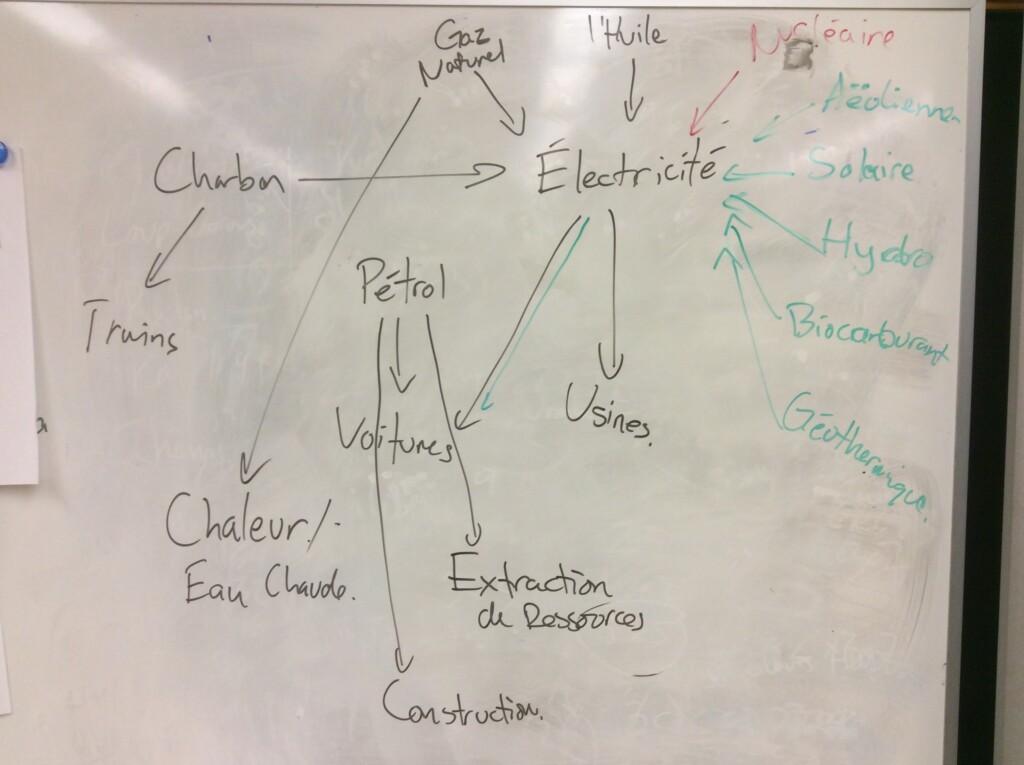 Gaz
Naturel
l'Huile
Nucléaire
Aëolienne
Charbon
Électricité
Solaire
Hydro
Pétrol
Biocarburant
Trains
Voitures
Usines.
Géothermique.
Chaleur/
Eau Chaude.
Extraction
de Ressources
Construction.